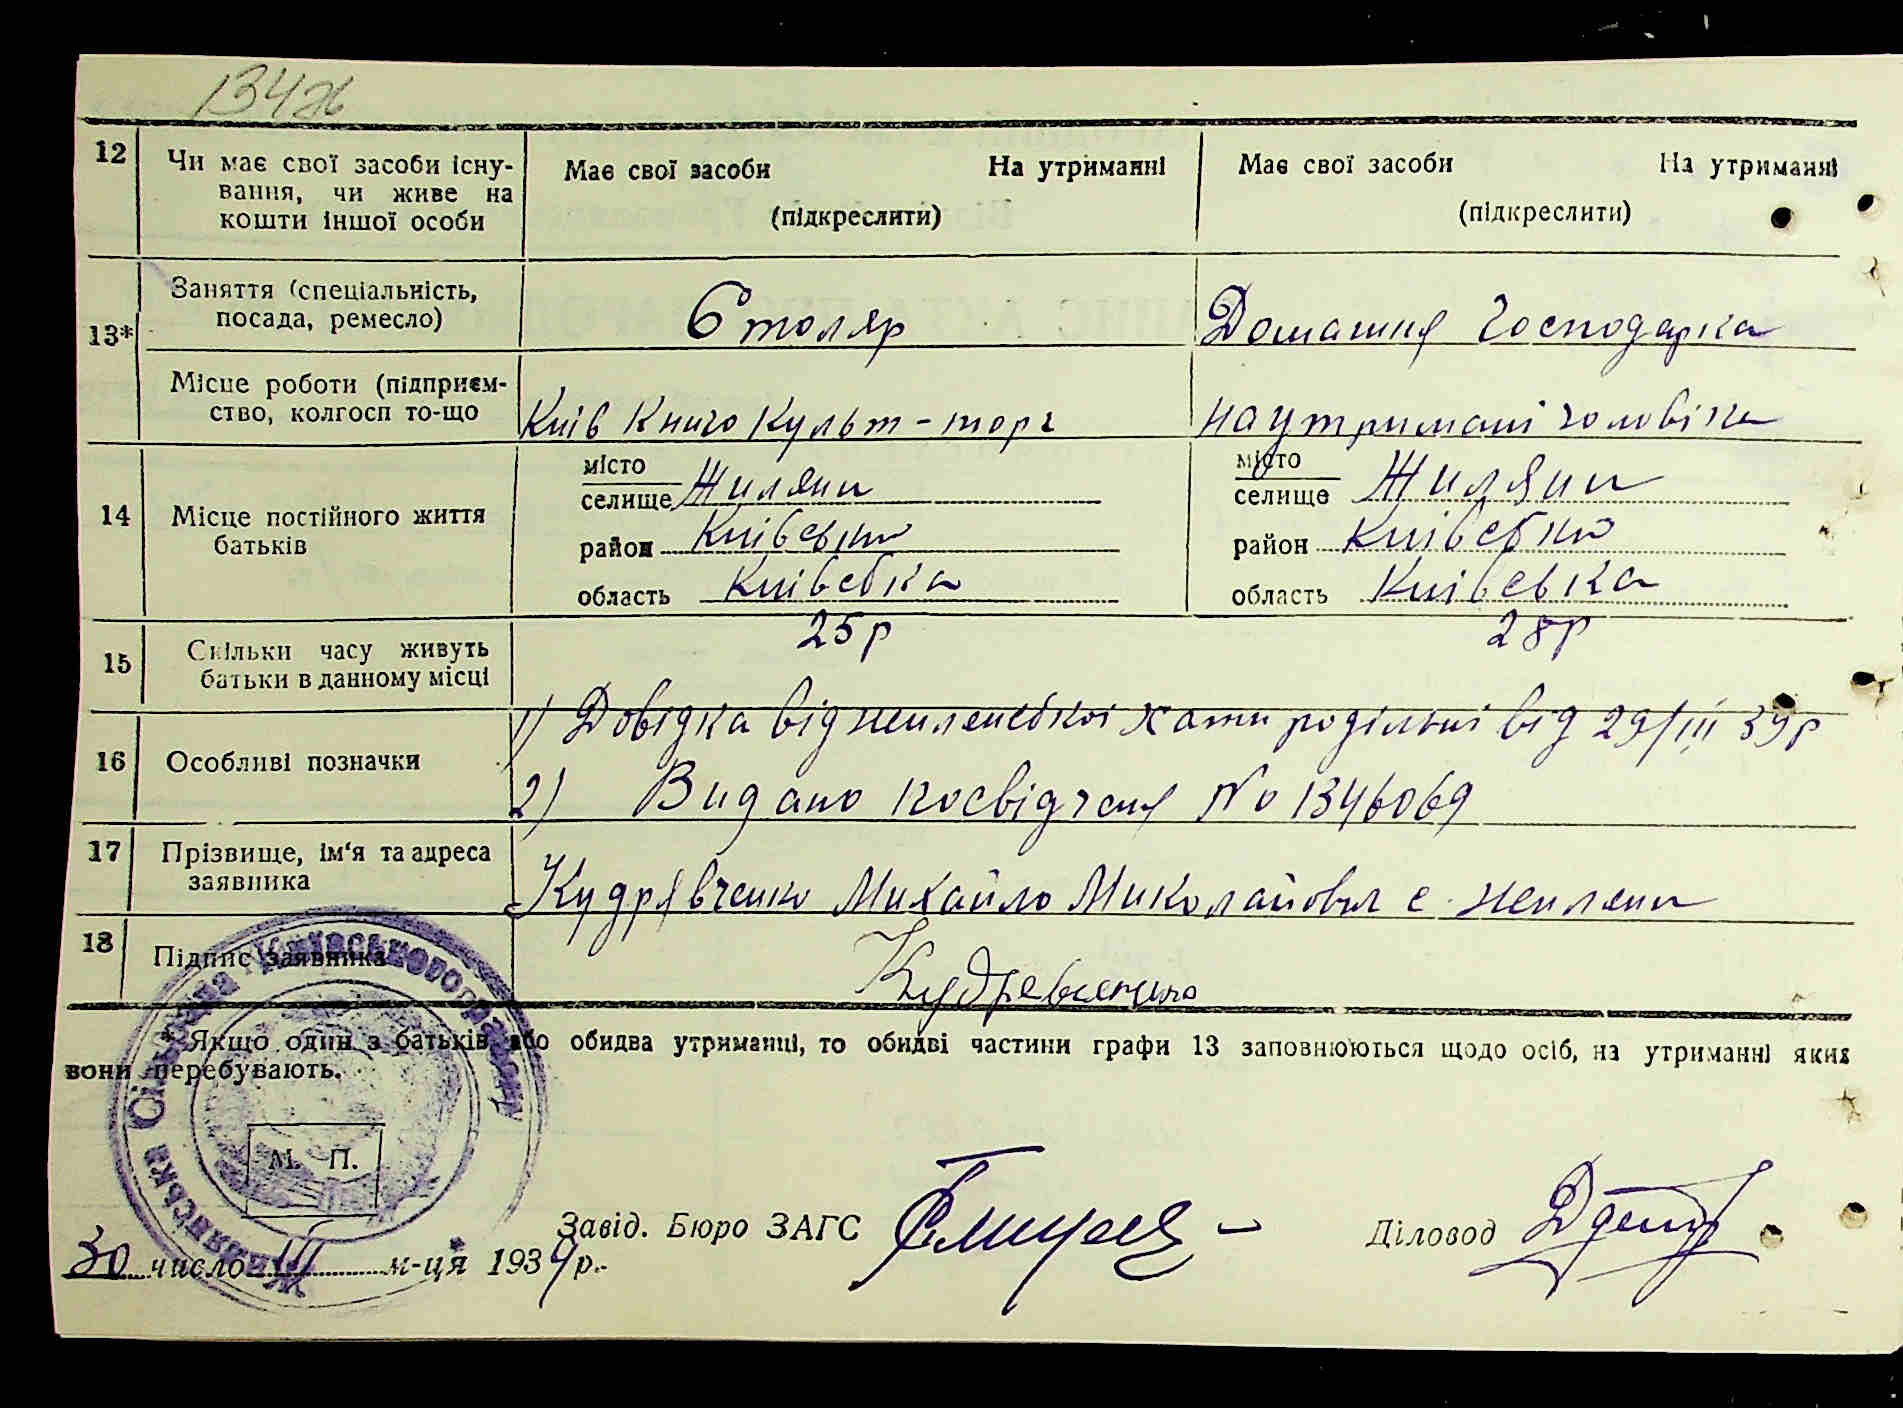 134ж
12 Чи має свої засоби існу-
вання, чи живе на
кошти іншої особи
Має свої засоби На утриманні
(підкреслити)
Має свої засоби На утриманні
(підкреслити)
13* Заняття (спеціальність,
посада, ремесло)
Столяр
Домашня господарка
Місце роботи (підприєм-
ство, колгосп то-що
Київ КнигоКульт-торг
на утримані чоловіка
14 Місце постійного життя
батьків
місто
селище Жиляни
район Київський
область Київська
місто
селище Жиляни
район Київський
область Київська
15 Скільки часу живуть
батьки в данному місці
25 р
28 р
16 Особливі позначки
1) Довідка від жилянської хати родільні від 29/III 39 р
2) Видано посвідченя № 1346069
17 Прізвище, ім'я та адреса
заявника
Кудрявченко Михайло Миколайович с. Жиляни
18 Підпис заявника
* Якщо один з батьків або обидва утриманці, то обидві частини графи 13 заповнюються щодо осіб, на утриманні яких
вони перебувають.
Жилянська Сільська Рада Київського району
М. П.
Завід. Бюро ЗАГС
Діловод
30 число III м-ця 1939 р.